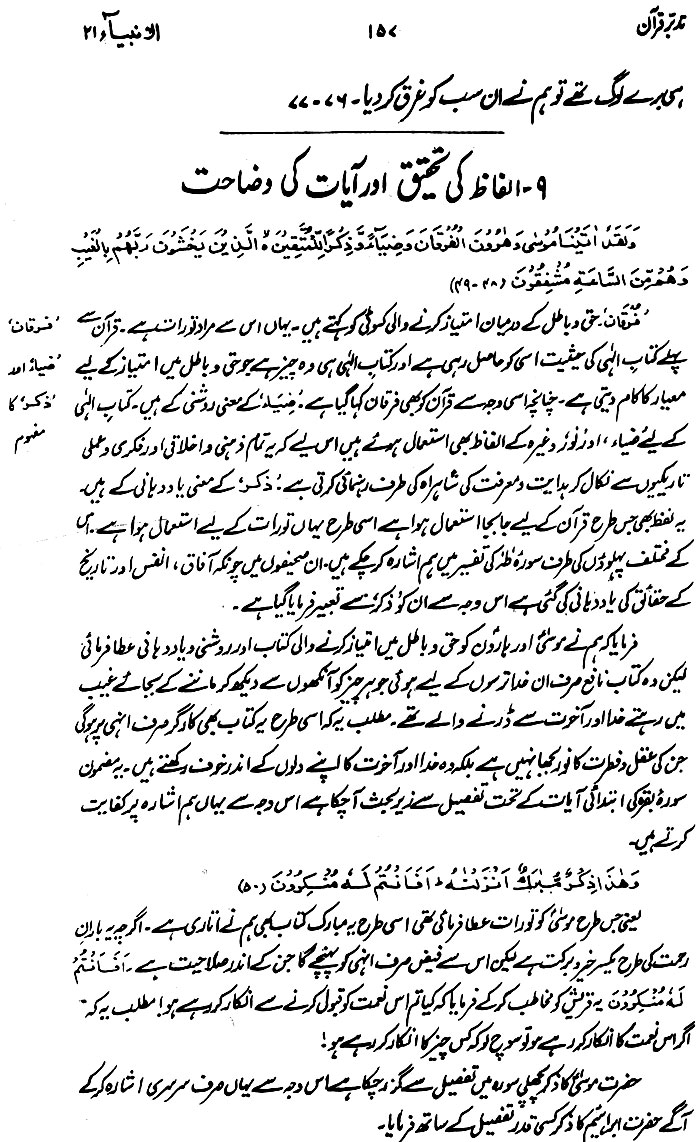 تدبر قرآن ۱۵۷ الانبیآء ۲۱
ہی برے لوگ تھے تو ہم نے ان سب کو غرق کر دیا۔ ۷۶-۷۷
۹- الفاظ کی تحقیق اور آیات کی وضاحت
وَلَقَدْ اٰتَيْنَا مُوْسٰى وَهٰرُوْنَ الْفُرْقَانَ وَضِيَآءً وَّذِكْرًا لِّلْمُتَّقِيْنَ ۙ الَّذِيْنَ يَخْشَوْنَ رَبَّهُمْ بِالْغَيْبِ
وَهُمْ مِّنَ السَّاعَةِ مُشْفِقُوْنَ (۴۸-۴۹)
’فرقان‘
’ضیاء‘ اور
’ذکر‘ کا
مفہوم
’فُرْقَان‘ حق و باطل کے درمیان امتیاز کرنے والی کسوٹی کو کہتے ہیں۔ یہاں اس سے مراد تورات ہے۔ قرآن سے
پہلے کتاب الٰہی کی حیثیت اسی کو حاصل رہی ہے اور کتاب الٰہی ہی وہ چیز ہے جو حق و باطل میں امتیاز کے لیے
معیار کا کام دیتی ہے۔ چنانچہ اسی وجہ سے قرآن کو بھی فرقان کہا گیا ہے۔ ’ضِیَاء‘ کے معنی روشنی کے ہیں۔ کتاب الٰہی
کے لیے ’ضیاء‘ اور ’نور‘ وغیرہ کے الفاظ بھی استعمال ہوئے ہیں اس لیے کہ یہ تمام ذہنی و اخلاقی اور فکری و عملی
تاریکیوں سے نکال کر ہدایت و معرفت کی شاہراہ کی طرف رہنمائی کرتی ہے۔ ’ذکر‘ کے معنی یاد دہانی کے ہیں۔
یہ لفظ بھی جس طرح قرآن کے لیے جابجا استعمال ہوا ہے اسی طرح یہاں تورات کے لیے استعمال ہوا ہے۔ اس
کے مختلف پہلوؤں کی طرف سورۂ طٰہٰ کی تفسیر میں ہم اشارہ کر چکے ہیں۔ ان صحیفوں میں چونکہ آفاق، انفس اور تاریخ
کے حقائق کی یاد دہانی کی گئی ہے اس وجہ سے ان کو ’ذکر‘ سے تعبیر فرمایا گیا ہے۔
فرمایا کہ ہم نے موسٰیؑ اور ہارونؑ کو حق و باطل میں امتیاز کرنے والی کتاب اور روشنی و یاد دہانی عطا فرمائی
لیکن وہ کتاب نافع صرف ان خدا ترسوں کے لیے ہوئی جو ہر چیز کو آنکھوں سے دیکھ کر ماننے کے بجائے غیب
میں رہتے خدا اور آخرت سے ڈرنے والے تھے۔ مطلب یہ کہ اسی طرح یہ کتاب بھی کارگر صرف انہی پر ہوگی
جن کی عقل و فطرت کا نور بجھا نہیں ہے بلکہ وہ خدا اور آخرت کا اپنے دلوں کے اندر خوف رکھتے ہیں۔ یہ مضمون
سورۂ بقرہ کی ابتدائی آیات کے تحت تفصیل سے زیر بحث آ چکا ہے اس وجہ سے یہاں ہم اشارہ پر کفایت
کرتے ہیں۔
وَهٰذَا ذِكْرٌ مُّبٰرَكٌ اَنْزَلْنٰهُ ؕ اَفَاَنْتُمْ لَهٗ مُنْكِرُوْنَ (۵۰)
یعنی جس طرح موسٰیؑ کو تورات عطا فرمائی تھی اسی طرح یہ مبارک کتاب بھی ہم نے اتاری ہے۔ اگرچہ یہ بارانِ
رحمت کی طرح یکسر خیر و برکت ہے لیکن اس سے فیض صرف انہی کو پہنچے گا جن کے اندر صلاحیت ہے۔ اَفَاَنْتُمْ
لَهٗ مُنْكِرُوْنَ یہ قریش کو مخاطب کر کے فرمایا کہ کیا تم اس نعمت کو قبول کرنے سے انکار کر رہے ہو! مطلب یہ کہ
اگر اس نعمت کا انکار کر رہے ہو تو سوچ لو کہ کس چیز کا انکار کر رہے ہو!
حضرت موسٰیؑ کا ذکر پچھلی سورہ میں تفصیل سے گزر چکا ہے اس وجہ سے یہاں صرف سرسری اشارہ کر کے
آگے حضرت ابراہیمؑ کا ذکر کسی قدر تفصیل کے ساتھ فرمایا۔